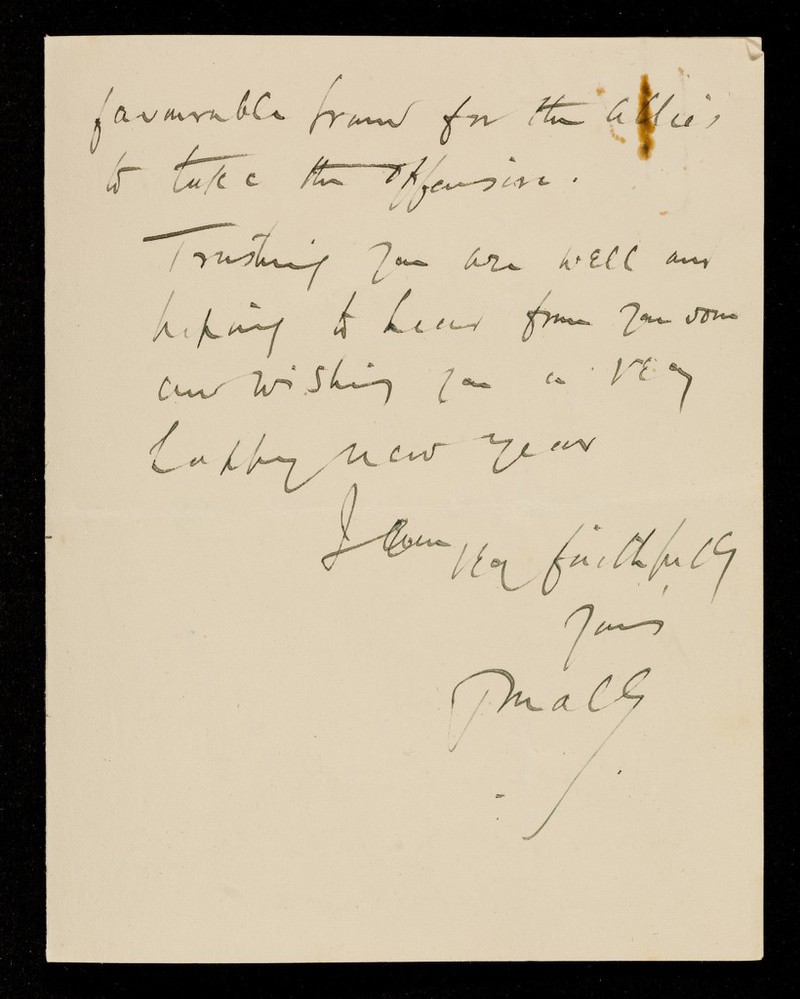 favourable ground for the Allies
to take the Offensive.
Trusting you are well and
hoping to hear from you soon
and wishing you a very
happy new year
I am very faithfully
yours